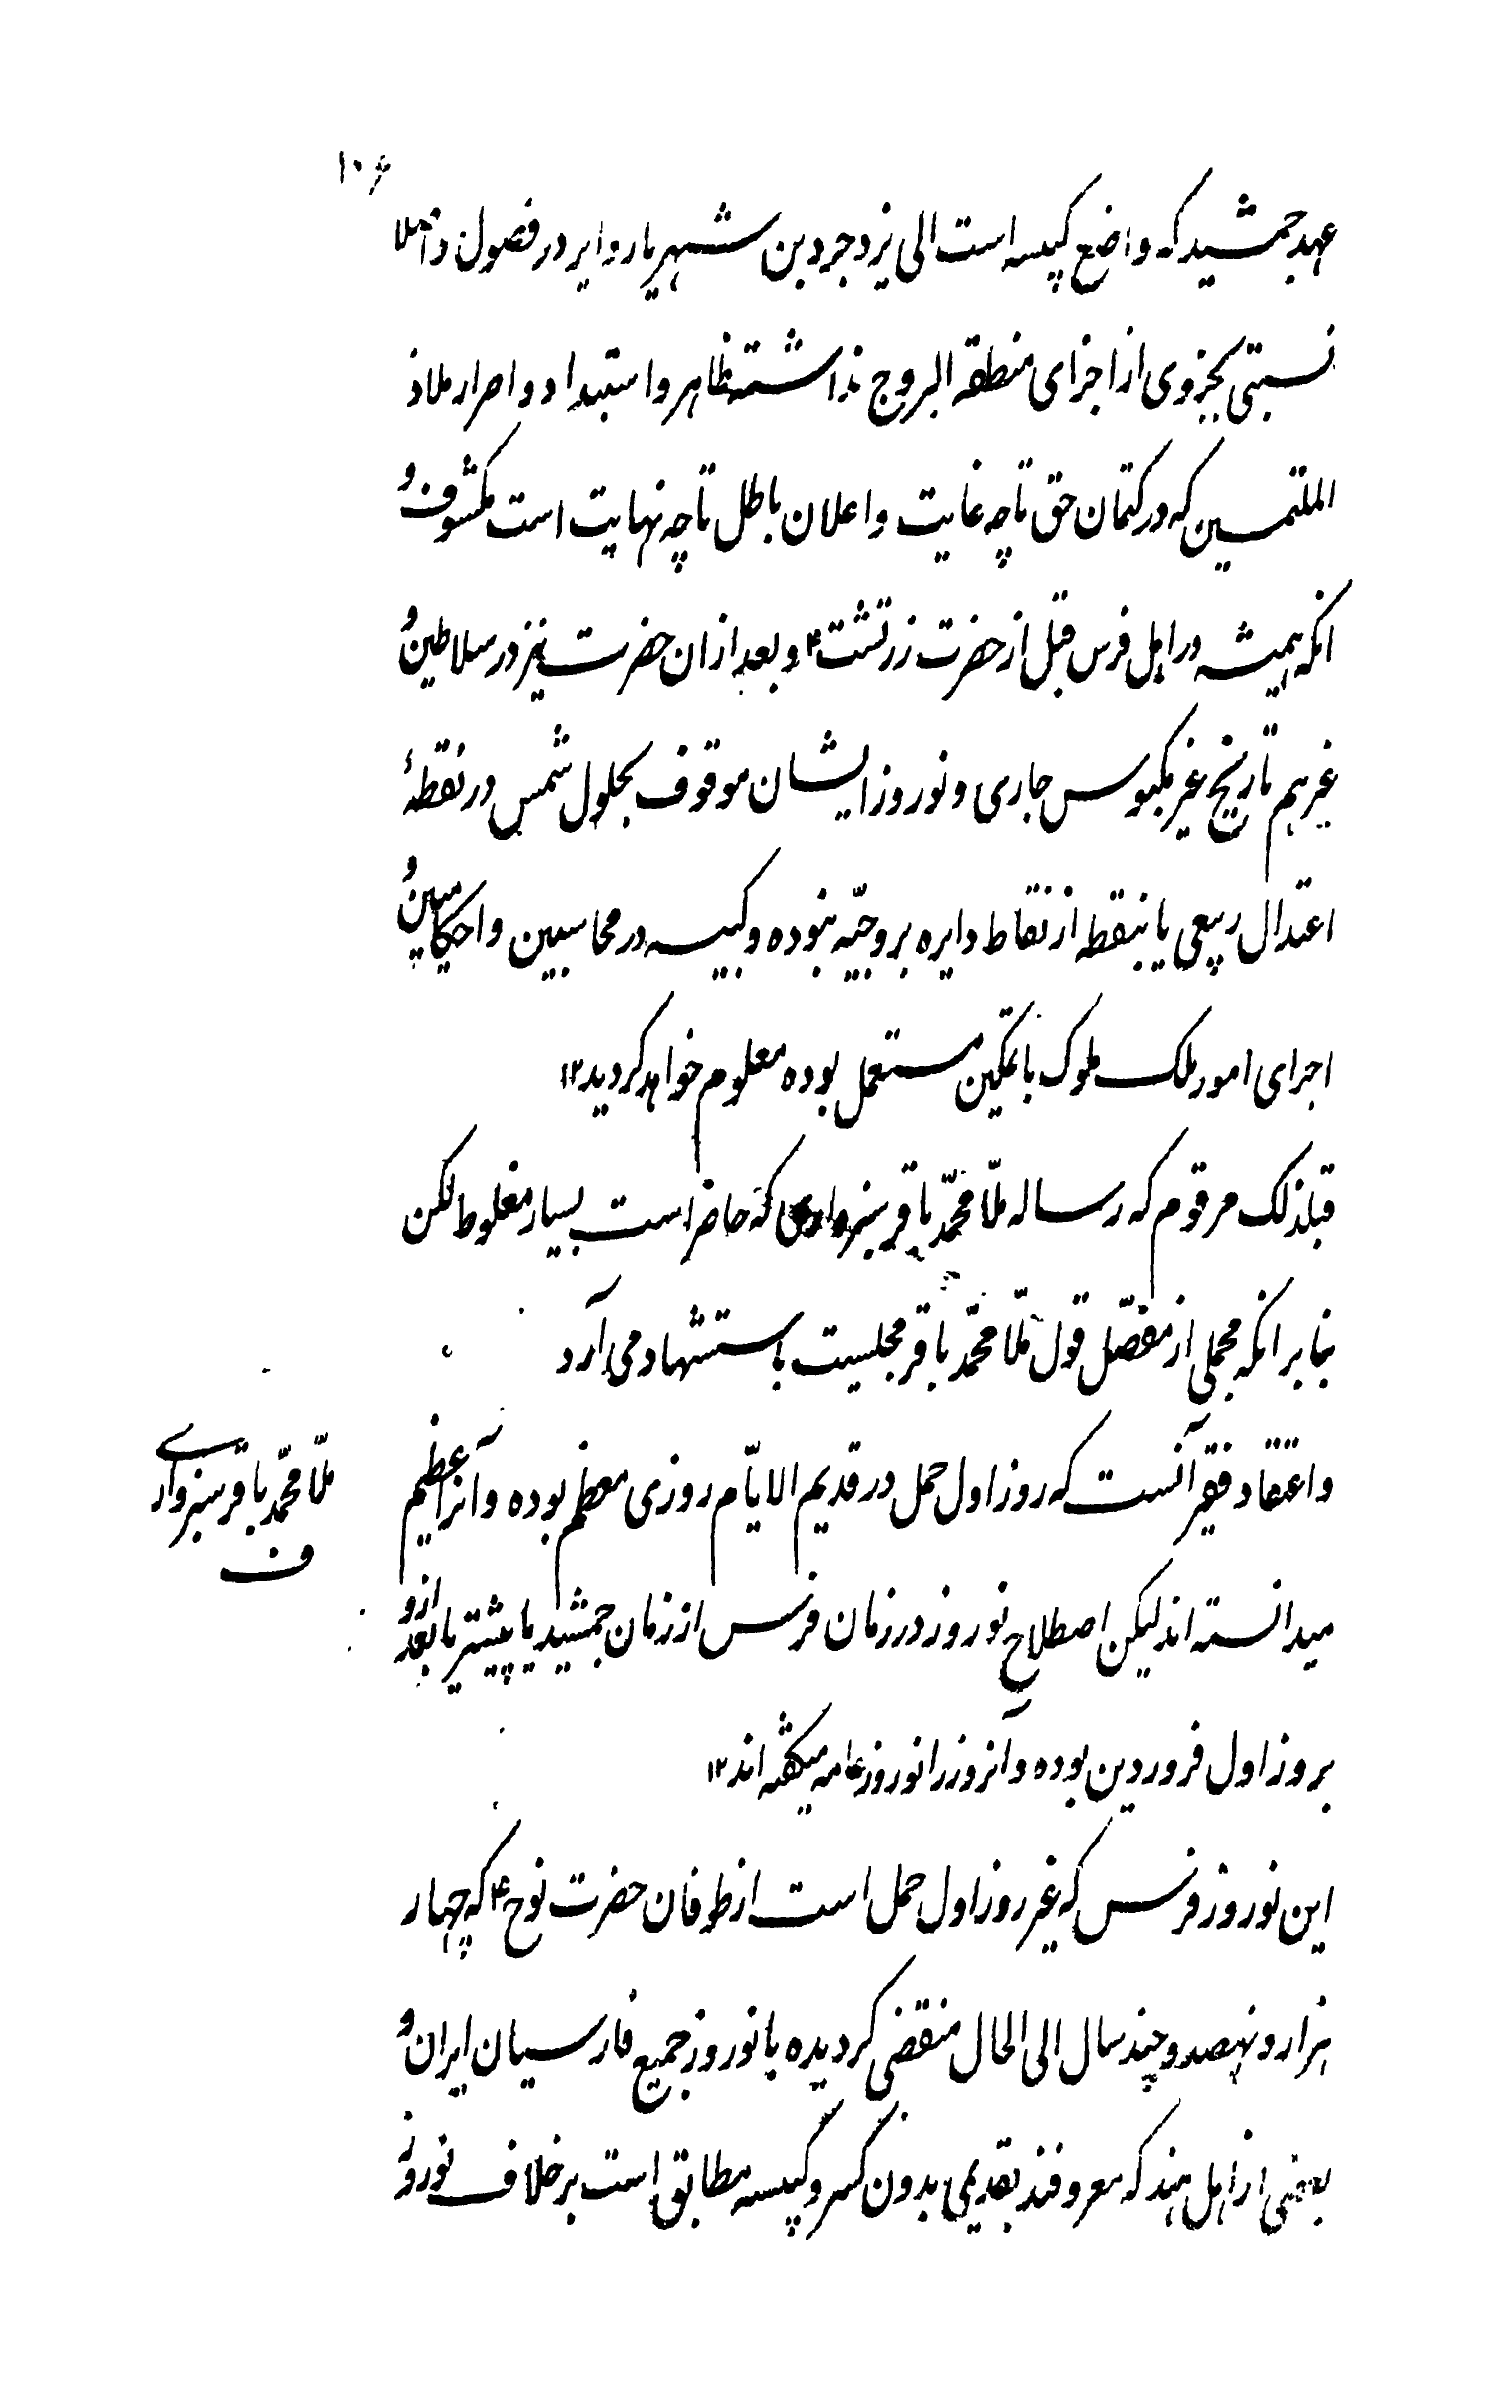 ۱۰۶
عهد جمشید که واضع کبیسه است الی یزدجرد بن شهریار و ایر در فصول و اصلا
نسبتی بجزوی از اجزای منطقه البروج نداشته ظاهر و استبداد و اصرار ملاذ
الملتمسین که در کتمان حق تا چه غایت و اعلان باطل تا چه نهایت است مکشوف و
انکه همیشه در اهل فرس قبل از حضرت زرتشت ۴ و بعد از ان حضرت نیز در سلاطین و
غیرهم تاریخ غیر مکبوس جاری و نوروز ایشان موقوف بحلول شمس در نقطهٔ
اعتدال ربیعی یا بنقطه از نقاط دایره بروجیّه نبوده و کبیسه در محاسبین و احکامیین و
اجرای امور ملک ملوک با تمکین مستعمل بوده معلوم خواهد کردید ۱۲
قبلذلک مرقوم که رساله ملّا محمّد باقر سبزواری که حاضر است بسیار مغلوط لکن
بنابر انکه مجملی از مفصّل قول ملّا محمّد باقر مجلسیت باستشهاد می آرد
و اعتقاد فقیر آنست که روز اول حمل در قدیم الایّام روزی معظم بوده و آنرا عظیم
میدانسته اند لیکن اصطلاح نوروز در زمان فرس از زمان جمشید یا پیشتر یا بعد ازو
بروز اول فروردین بوده و آنروز را نوروز عامه میکفته اند ۱۲
ملّا محمّد باقر سبزواری
ف
این نوروز فرس که غیر روز اول حمل است از طوفان حضرت نوح ۴ که چهار
هزار و نهصد و چند سال الی الحال منقضی کردیده با نوروز جمیع فارسیان ایران و
بعضی از اهل هند که معروفند بقدیمی بدون کسر و کبیسه مطابق است بر خلاف نوروز